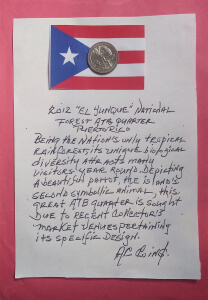 2012 "EL YUNQUE" NATIONAL
FOREST ATB QUARTER
PUERTO RICO
BEING THE NATION'S ONLY TROPICAL
RAINFOREST, ITS UNIQUE BIOLOGICAL
DIVERSITY ATTRACTS MANY
VISITORS YEAR ROUND. DEPICTING
A BEAUTIFUL PARROT, THE ISLAND'S
SECOND SYMBOLIC ANIMAL, THIS
GREAT ATB QUARTER IS SOUGHT
DUE TO RECENT COLLECTOR'S
MARKET VENUES PERTAINING
ITS SPECIFIC DESIGN.